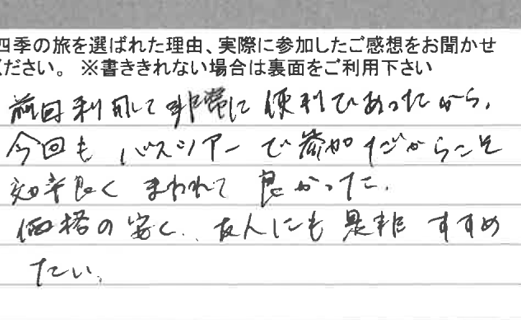 四季の旅を選ばれた理由、実際に参加したご感想をお聞かせ
ください。 ※書ききれない場合は裏面をご利用下さい
前回利用して非常に便利であったから、
今回もバスツアーで参加だからこそ
効率良くまわれて良かった。
価格の安く、友人にも是非すすめ
たい。